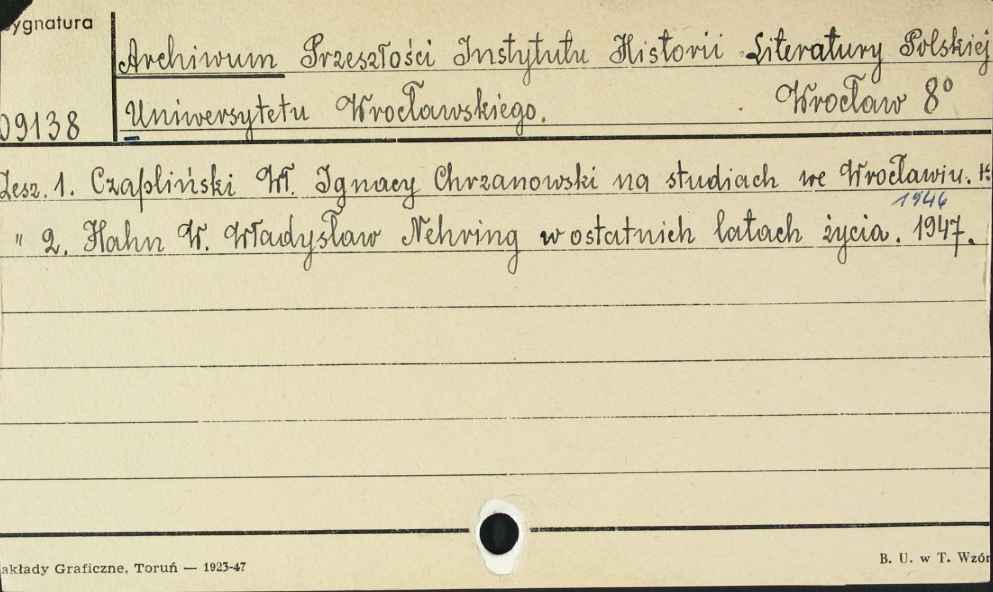 ygnatura
Archiwum Przeszłości Instytutu Historii Literatury Polskiej
Uniwersytetu Wrocławskiego. Wrocław 8°
09138
Zesz. 1. Czapliński Wł. Ignacy Chrzanowski na studiach we Wrocławiu.
1946
" 2. Hahn W. Władysław Nehring w ostatnich latach życia. 1947.
akłady Graficzne, Toruń — 1923-47
B. U. w T. Wzór